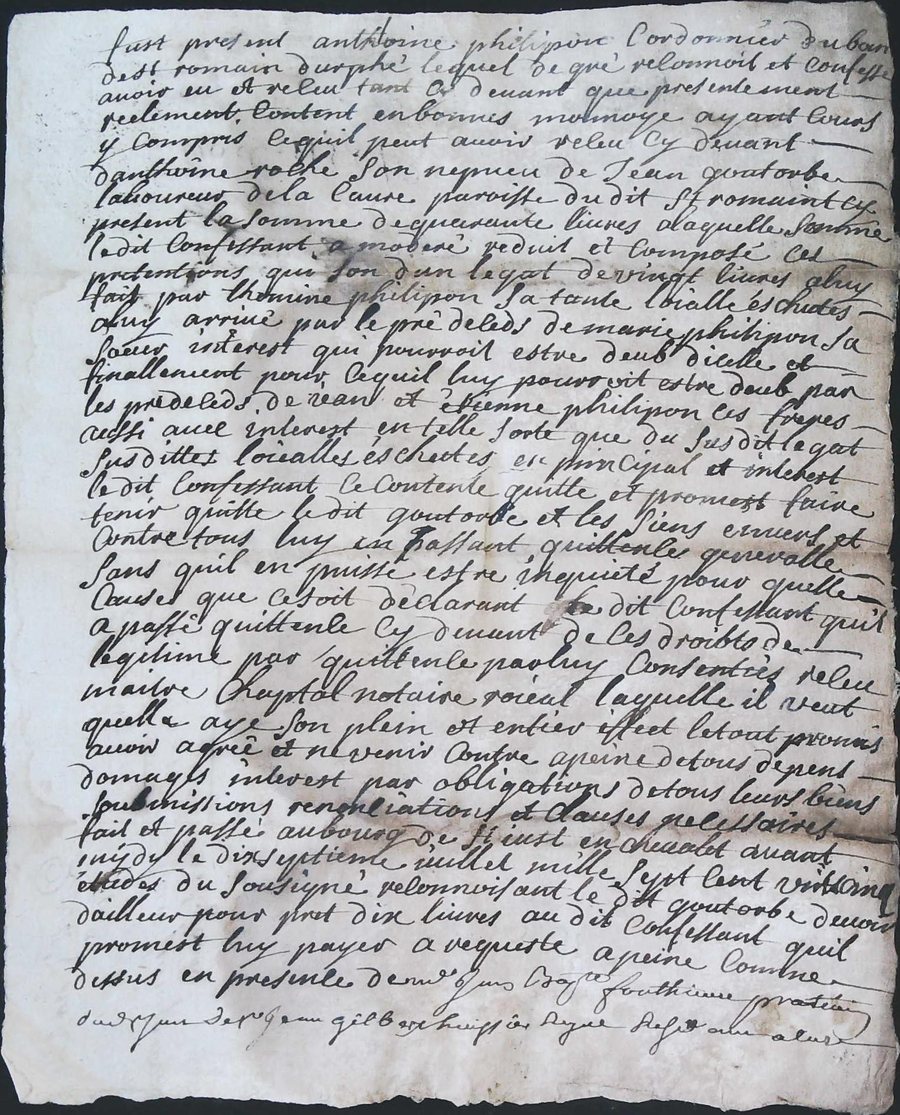 fust present anthoine philipon Cordonnier du ban
de st romain durphé lequel de gré reconnoit et confesse
avoir eu et receu tant cy devant que presentement
reelement Content en bonnes monnoye ayant Cours
y Compris cequil peut avoir receu Cy devant
danthoine roche son nepveu de Jean goutorbe
laboureur de la Caure paroisse du dit st romain et cy
present la somme de quarante livres a laquelle somme
le dit Confessant a moderé reduit et Composé ces
pretentions qui son dun legat de vingt livres a luy
fait par thomine philipon sa tante loialles escheutes
a luy arrivé par le predeceds de marie philipon sa
soeur interest qui pourroit estre deub dicelle et
finallement pour cequil luy pourroit estre deub par
les predeceds de jean et etienne philipon ces freres
aussi avec interest en telle sorte que du susdit legat
susdittes loiealles escheutes en principal et interest
le dit Confessant ce Contente quitte et promest faire
tenir quitte le dit goutorbe et les siens envers et
Contre tous luy en passant quittence generalle
sans quil en puisse estre inquieté pour quelle
Cause que ce soit déclarant le dit Confessant qu'il
a passé quittence Cy devant de ces droibts de
legitime par quittence par luy Consenties receu
maitre Chaptal notaire roieal laquelle il veut
quella aye son plein et entier effect le tout promis
avoir agreé et ne venir Contre a peine de tous depens
domages interest par obligations de tous leurs biens
soubmissions renonciations et Clauses necessaires
fait et passé au bourg de st just en chevalet avant
midy le dix septieme juillet mille sept cent vint cinq
études du sousigné reconnoissant le dit goutorbe devoir
dailleur pour pret dix livres au dit Confessant quil
promest luy payer a requeste a peine Comme
dessus en presence de praticien
dud huissier